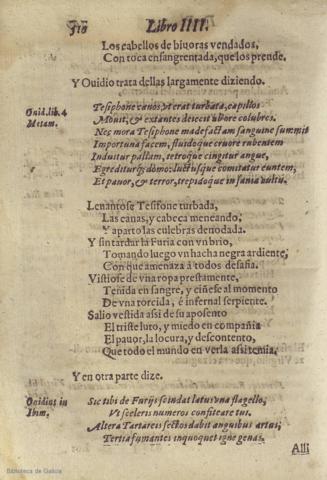 510 Libro IIII.
Los cabellos de biuoras vendados,
Con toca ensangrentada, que los prende.
Y Ouidio trata dellas largamente diziendo.
Ouid. lib. 4
Metam.
Tesiphone canos, vt erat turbata, capillos
Mouit, & extantes deiecit ab ore colubres.
Nec mora Tesiphone madefactam sanguine summit
Importuna facem, fluidoque cruore rubentem
Induitur pallam, retroque cingitur angue,
Egrediturq; domo: luctusque comitatur euntem,
Et pauor, & terror, trepidoque insania vultu.
Leuantose Tesifone turbada,
Las canas, y cabeça meneando,
Y aparto las culebras denodada.
Y sin tardar la Furia con vn brio,
Tomando luego vn hacha negra ardiente,
Con que amenaza à todos desafia.
Vistiose de vna ropa prestamente,
Teñida en sangre, y ciñese al momento
De vna torcida, é infernal serpiente.
Salio vestida assi de su aposento
El triste luto, y miedo en compañia
El pauor, la locura, y descontento,
Que todo el mundo en verla assi temia.
Y en otra parte dize.
Ouidius in
Ibim.
Sic tibi de Furijs scindat latus vna flagello,
Vt sceleris numeros confiteare tui.
Altera Tartareis sectos dabit anguibus artus,
Tertia fumantes inquoquet igne genas.
Alli
Biblioteca de Galicia